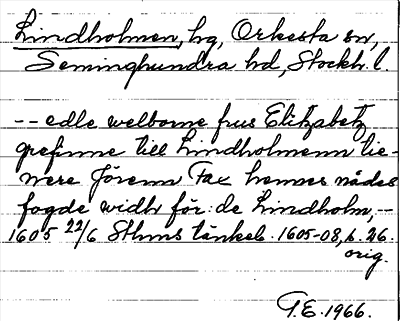 Lindholmen, hg, Orkesta sn,
Seminghundra hd, Stockh. l.
-- edle welborne frus Elitzabetz
grefinne till Lindholmenn tie-
nere Jörenn Fax hennes nådes
fogde widh för: de Lindholm, --
1605 22/6 Sthms tänkeb. 1605-08, b. 26.
orig.
G.E. 1966.